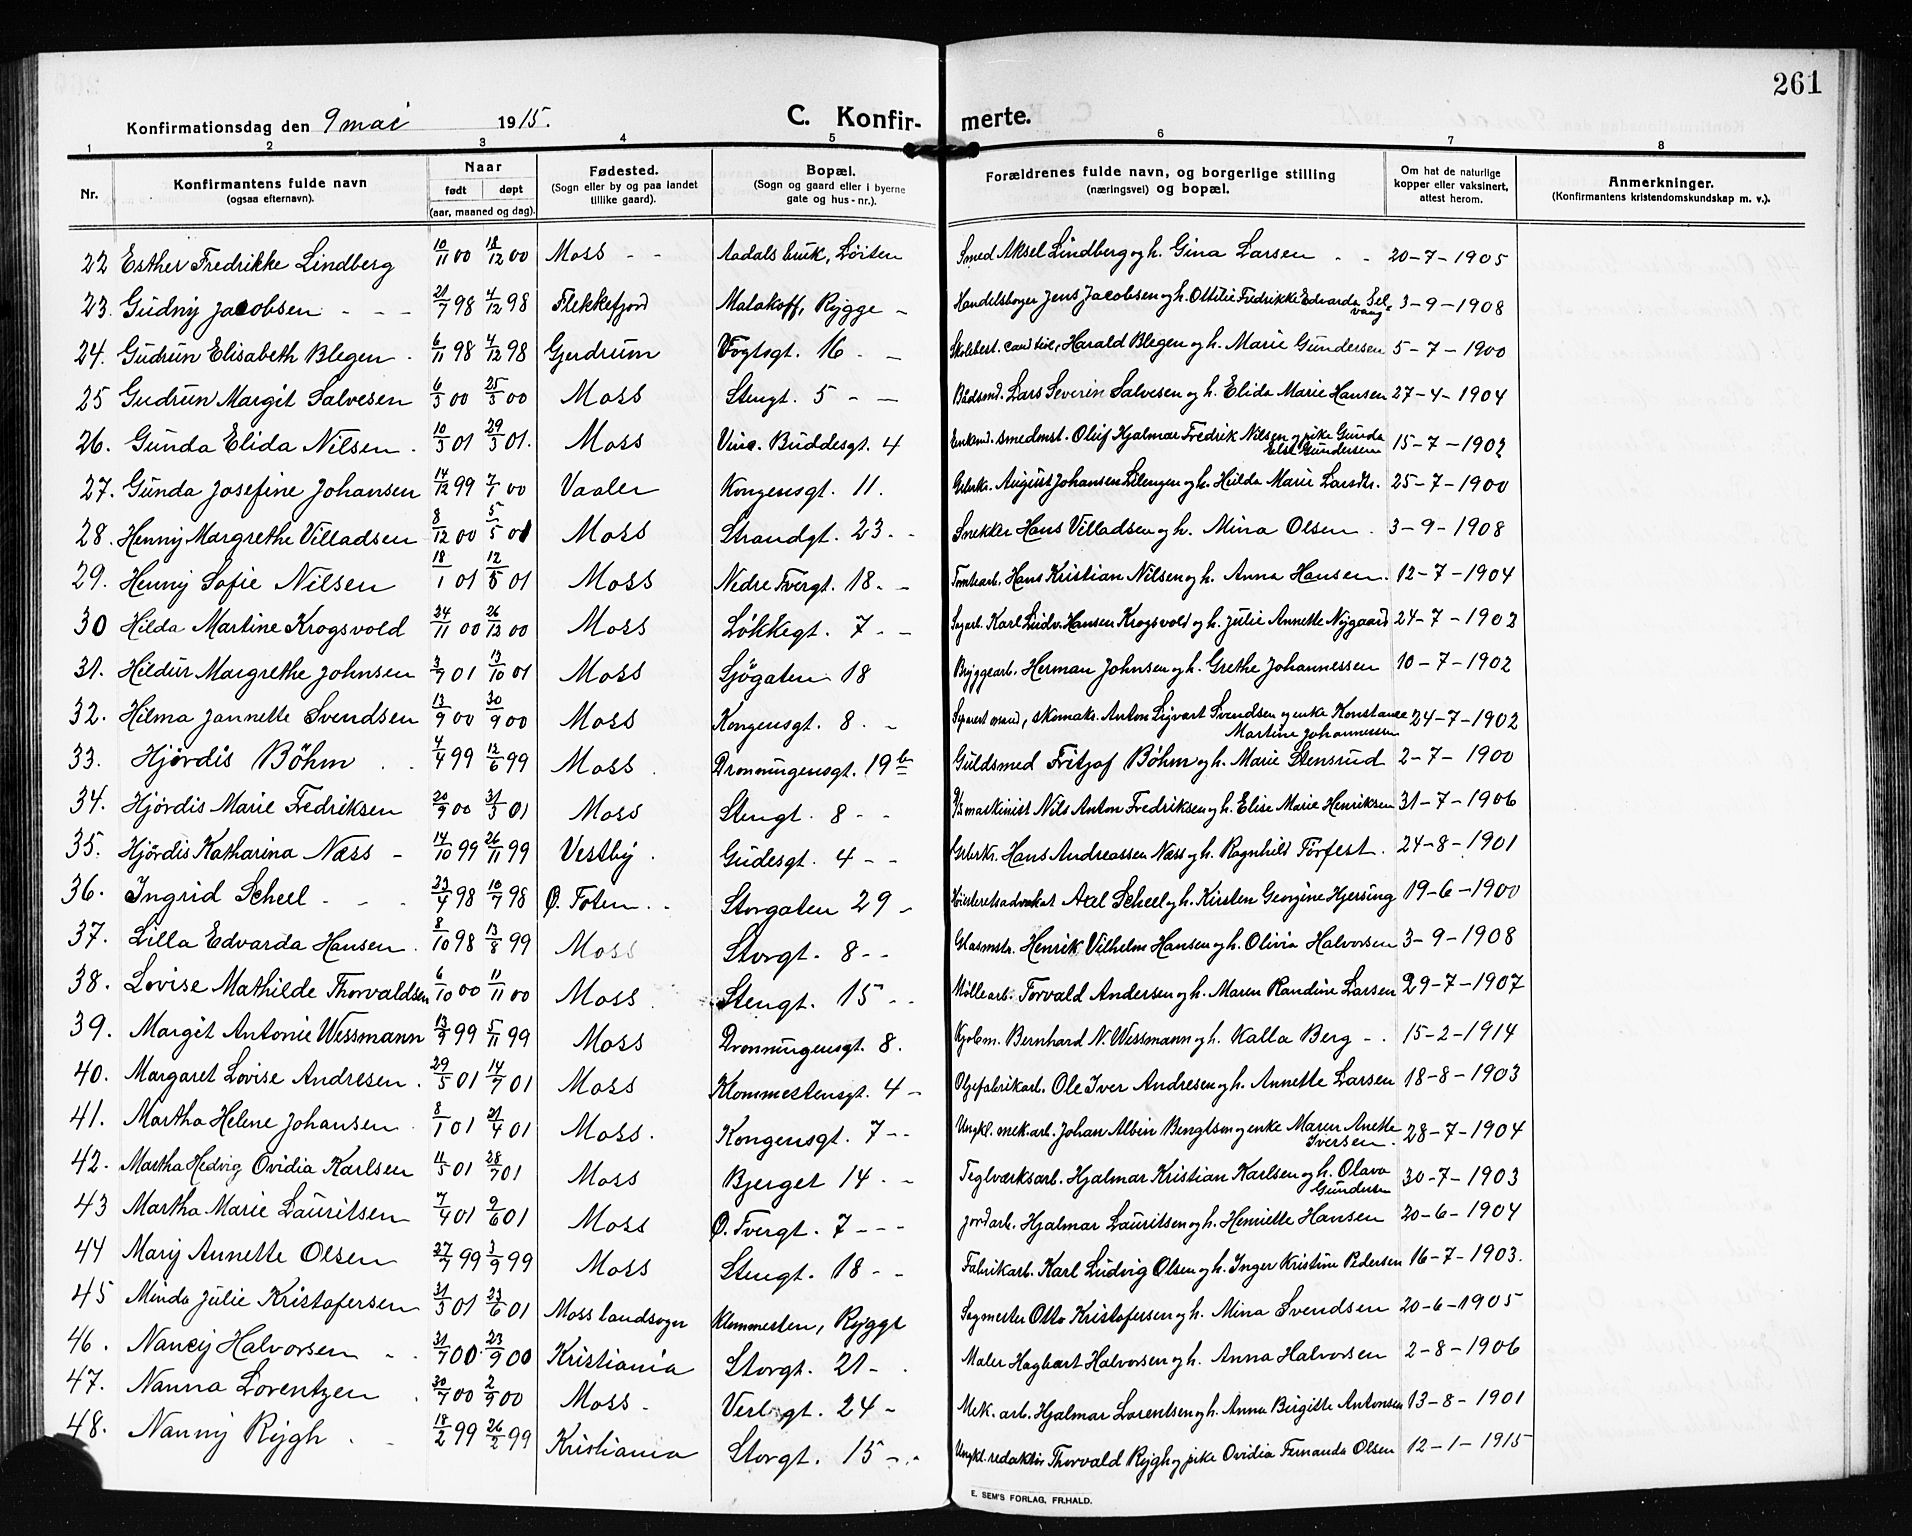 261
Konfirmationsdag den 9 mai 1915. C. Konfirmerte.
1 2 3 4 5 6 7 8
Nr. Konfirmantens fulde navn (ogsaa efternavn). Naar født døpt (aar, maaned og dag). Fødested. (Sogn eller by og paa landet tillike gaard). Bopæl. (Sogn og gaard eller i byerne gate og hus-nr.). Forældrenes fulde navn, og borgerlige stilling (næringsvei) og bopæl. Om hat de naturlige kopper eller vaksinert, attest herom. Anmerkninger. (Konfirmantens kristendomskundskap m. v.).
22 Esther Fredrikke Lindberg 10/11 00 18/12 00 Moss - - Aadals bruk, Löiten Smed Aksel Lindberg og h. Gina Larsen - - 20-7-1905
23. Gudny Jacobsen - - - 21/7 98 4/12 98 Flekkefjord Malakoff, Rygge - Handelsborger Jens Jacobsen og h. Ottilie Fredrikke Edvarda Selvang 3-9-1908
24. Gudrun Elisabeth Blegen . 6/11 98 4/12 98 Gjerdrum Vogtsgt. 16 - - Skolebest. cand. teol., Harald Blegen og h. Marie Gundersen 5-7-1900
25 Gudrun Margit Salvesen 6/3 00 25/3 00 Moss Stengt. 5 - - Bådsmd. Lars Severin Salvesen og h. Elida Marie Hansen 27-4-1904
26. Gunda Elida Nilsen . 10/3 01 29/3 01. Moss Vinc. Buddesgt. 4 Enkemd. smedmst. Oluf Hjalmar Fredrik Nilsen og pike Gunda Elise Gundersen 15-7-1902
27. Gunda Josefine Johansen 14/12 99 7/1 00 Vaaler Kongensgt. 11. August Johansen Lilengen og h. Hilda Marie Larsdtr. 25-7-1900
28. Henny Margrethe Villadsen 8/12 00 5/5 01 Moss Strandgt. 23. - Snekker Hans Villadsen og h. Mina Olsen . 3-9-1908
29. Henny Sofie Nilsen 18/1 01 12/5 01 Moss Nedre Tvergt. 18 - - Tomtearb. Hans Kristian Nilsen og h. Anna Hansen. 12-7-1904
30 Hilda Martine Krogsvold 24/11 00 26/12 00 Moss Lökkegt. 7 - - Sagarb. Karl Ludv. Hansen Krogsvold og h. Julie Annette Nygaard 24-7-1902
31. Hildur Margrethe Johnsen 3/7 01 13/10 01 Moss Sjögaten 18 Bryggearb. Herman Johnsen og h. Grethe Johannessen 10-7-1902
32. Hilma Jannette Svendsen 13/9 00 30/9 00 Moss Kongensgt. 8. - Separert mand, skomak. Anton Sigvart Svendsen og enke Konstance Martine Johannessen 24-7-1902
33. Hjördis Böhm . . 4/4 99 12/6 99 Moss . Dronningensgt. 19 b Guldsmed Fritjof Böhm og h. Marie Stensrud 2-7-1900
34. Hjördis Marie Fredriksen 20/9 00 31/3 01 Moss Stengt. 8 - - maskinist Nils Anton Fredriksen og h. Elise Marie Henriksen 31-7-1906
35. Hjördis Katharina Næss - 14/10 99 26/11 99 Vestby . Gudesgt. 4 - - Hans Andreassen Næss og h. Ragnhild Torfest . 24-8-1901
36. Ingrid Scheel - - - 23/4 98 10/7 98 Ø. Toten . - Storgaten 29 - Höiesteretsadvokat Axel Scheel og h. Kirsten Georgine Hjersing 19-6-1900
37. Lilla Edvarda Hansen . 8/10 98 13/8 99 Moss Storgt. 8 - - Glasmstr. Henrik Vilhelm Hansen og h. Olivia Halvorsen 3-9-1908
38. Lovise Mathilde Thorvaldsen 6/10 00 11/11 00 Moss . Stengt. 15 - - Möllearb. Torvald Andersen og h. Maren Randine Larsen 29-7-1907
39. Margit Antonie Wessmann 13/9 99 5/11 99 Moss Dronningensgt. 8. Kjøbm. Bernhard N. Wessmann og h. Kalla Berg - . 15-2-1914
40. Margaret Lovise Andresen . 29/5 01 14/7 01 Moss Klommestensgt. 4 - Oljefabrikarb. Ole Iver Andresen og h. Annette Larsen 18-8-1903
41. Martha Helene Johansen . 8/1 01 21/4 01 Moss . Kongensgt. 7 - - Ungkl. mek. arb. Johan Albin Bengtsen og enke Maren Anette Iversen . 28-7-1904
42. Martha Hedvig Ovidia Karlsen 11/5 01 28/7 01 Moss Bjerget 14 - - Teglværksarb. Hjalmar Kristian Karlsen og h. Olava Gundersen 30-7-1903
43 Martha Marie Lauritsen 7/4 01 9/6 01 Moss Ø. Tvergt. 7 - - - Jordarb. Hjalmar Lauritsen og h. Henriette Hansen 20-6-1904
44 Mary Annette Olsen 27/7 99 3/9 99 Moss Stengt. 18 - - Fabrikarb. Karl Ludvig Olsen og h. Inger Kristine Pedersen 16-7-1903.
45 Minda Julie Kristofersen 31/3 01 23/6 01 Moss landsogn Klommesten, Rygge Sagmester Otto Kristofersen og h. Mina Svendsen 20-6-1905
46. Nancy Halvorsen - . 31/7 00. 23/9 00 Kristiania Storgt. 21 - . Maler Hagbart Halvorsen og h. Anna Halvorsen 2-8-1906
47. Nanna Lorentzen . 30/7 00 2/9 00 Moss - Verlegt. 24 - Mek. arb. Hjalmar Lorentsen og h. Anna Birgitte Antonsen 13-8-1901
48. Nanny Rygh . - 18/2 99 26/2 99 Kristiania Storgt. 15 - - Ungkl. redaktör Thorvald Rygh og pike Ovidia Fernanda Olsen 12-1-1915
E. SEM'S FORLAG, FR.HALD.